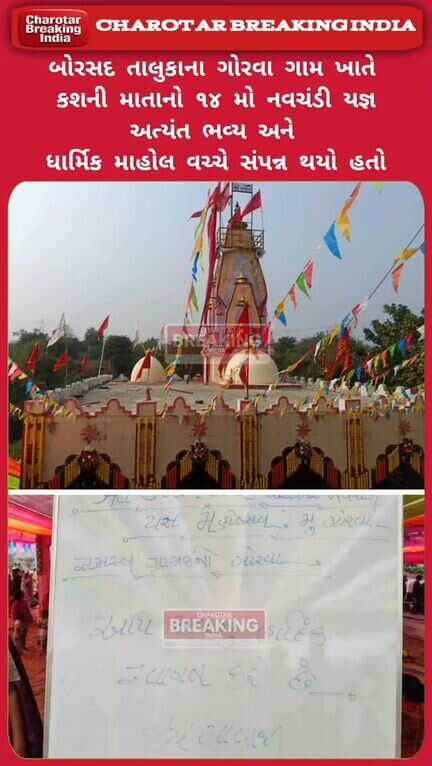 Charotar
Breaking
India
CHAROTAR BREAKING INDIA
બોરસદ તાલુકાના ગોરવા ગામ ખાતે
કશની માતાનો ૧૪ મો નવચંડી યજ્ઞ
અત્યંત ભવ્ય અને
ધાર્મિક માહોલ વચ્ચે સંપન્ન થયો હતો
BREAKING
યજ્ઞ મહોત્સવ. મુ ગોરવા
સમસ્ત ગ્રામજનો ગોરવા
CHAROTAR
BREAKING
INDIA
સ્વાગત કરે છે